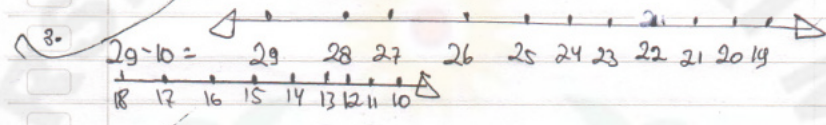 3.
29-10= 29 28 27 26 25 24 23 22 21 20 19
18 17 16 15 14 13 12 11 10